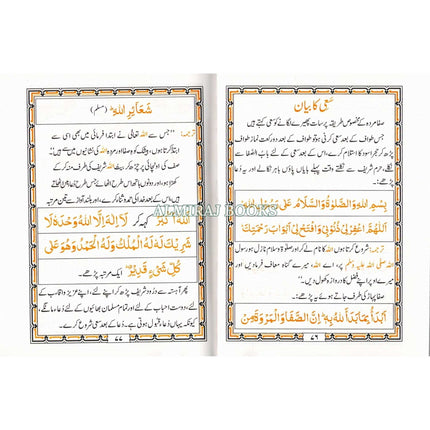 سعی کا بیان
صفا مروہ کے مخصوص طریقہ پر سات چکر لگانے کو سعی کہتے ہیں
جس طواف کے بعد سعی کرنی ہو تو طواف کے بعد دو رکعت نماز طواف
پڑھ کر حجر اسود کا استلام کرے، اس کے بعد سعی کے لئے باب الصفا سے
نکلے، حرم شریف سے نکلتے ہوئے پہلے بایاں پاؤں باہر نکالے اور یہ دعا
پڑھے:۔
بِسْمِ اللهِ وَالصَّلَاةُ وَالسَّلَامُ عَلٰى رَسُوْلِ اللهِ
اَللّٰهُمَّ اغْفِرْ لِيْ ذُنُوْبِيْ وَافْتَحْ لِيْ اَبْوَابَ رَحْمَتِكَ
ترجمہ: شروع کرتا ہوں اللہ کا نام لے کر اور صلوٰۃ و سلام نازل ہو رسول
اللہ صلی اللہ علیہ وسلم پر، اے اللہ میرے گناہ معاف فرما دیں اور
میرے اوپر اپنے فضل کا دروازہ کھول دیں۔
صفا پہاڑ کی طرف جاتے ہوئے یہ پڑھے:۔
اَبْدَأُ بِمَا بَدَأَ اللهُ بِهٖ اِنَّ الصَّفَا وَالْمَرْوَةَ مِنْ
٧٦
شَعَآئِرِ اللهِ (مسلم)
ترجمہ: "جس سے اللہ تعالیٰ نے ابتدا فرمائی میں بھی اسی سے
ابتدا کرتا ہوں، بیشک کوہ صفا و مروہ اللہ کی نشانیوں میں سے ہیں"
صفا کی اونچائی پر چڑھ کر بیت اللہ شریف کی طرف منہ کر کے
کھڑا ہو، اور دونوں ہاتھ اس طرح اٹھائے جس طرح دعا میں اٹھاتے
ہیں۔ اس کے بعد خدا کی حمد و ثنا کرے، اور بلند آواز سے تین مرتبہ
اَللهُ اَكْبَرُ کہہ کر لَا اِلٰهَ اِلَّا اللهُ وَحْدَهٗ لَا
شَرِيْكَ لَهٗ لَهُ الْمُلْكُ وَلَهُ الْحَمْدُ وَهُوَ عَلٰى
كُلِّ شَيْءٍ قَدِيْرٌ ایک مرتبہ پڑھے۔
پھر آہستہ سے درود شریف پڑھ کر اپنے لئے، اپنے عزیز و اقارب کے
لئے، دوست احباب کے لئے اور تمام مسلمان بھائیوں کے لئے دعا مانگے،
کیونکہ یہاں دعا قبول ہوتی ہے۔ دعا کے بعد سعی شروع کرے۔
٧٧
ALMIRAJ BOOKS